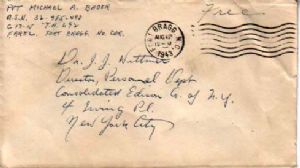 PVT MICHAEL A. BADER
A.S.N. 32 985 482
FARTC. FORT BRAGG. NO. CAR.
Free
FORT BRAGG N.C.
AUG 17
1943
Dr. J. J. Wittmer
Director, Personnel Dept
Consolidated Edison Co. of N.Y.
4 Irving Pl.
New York City